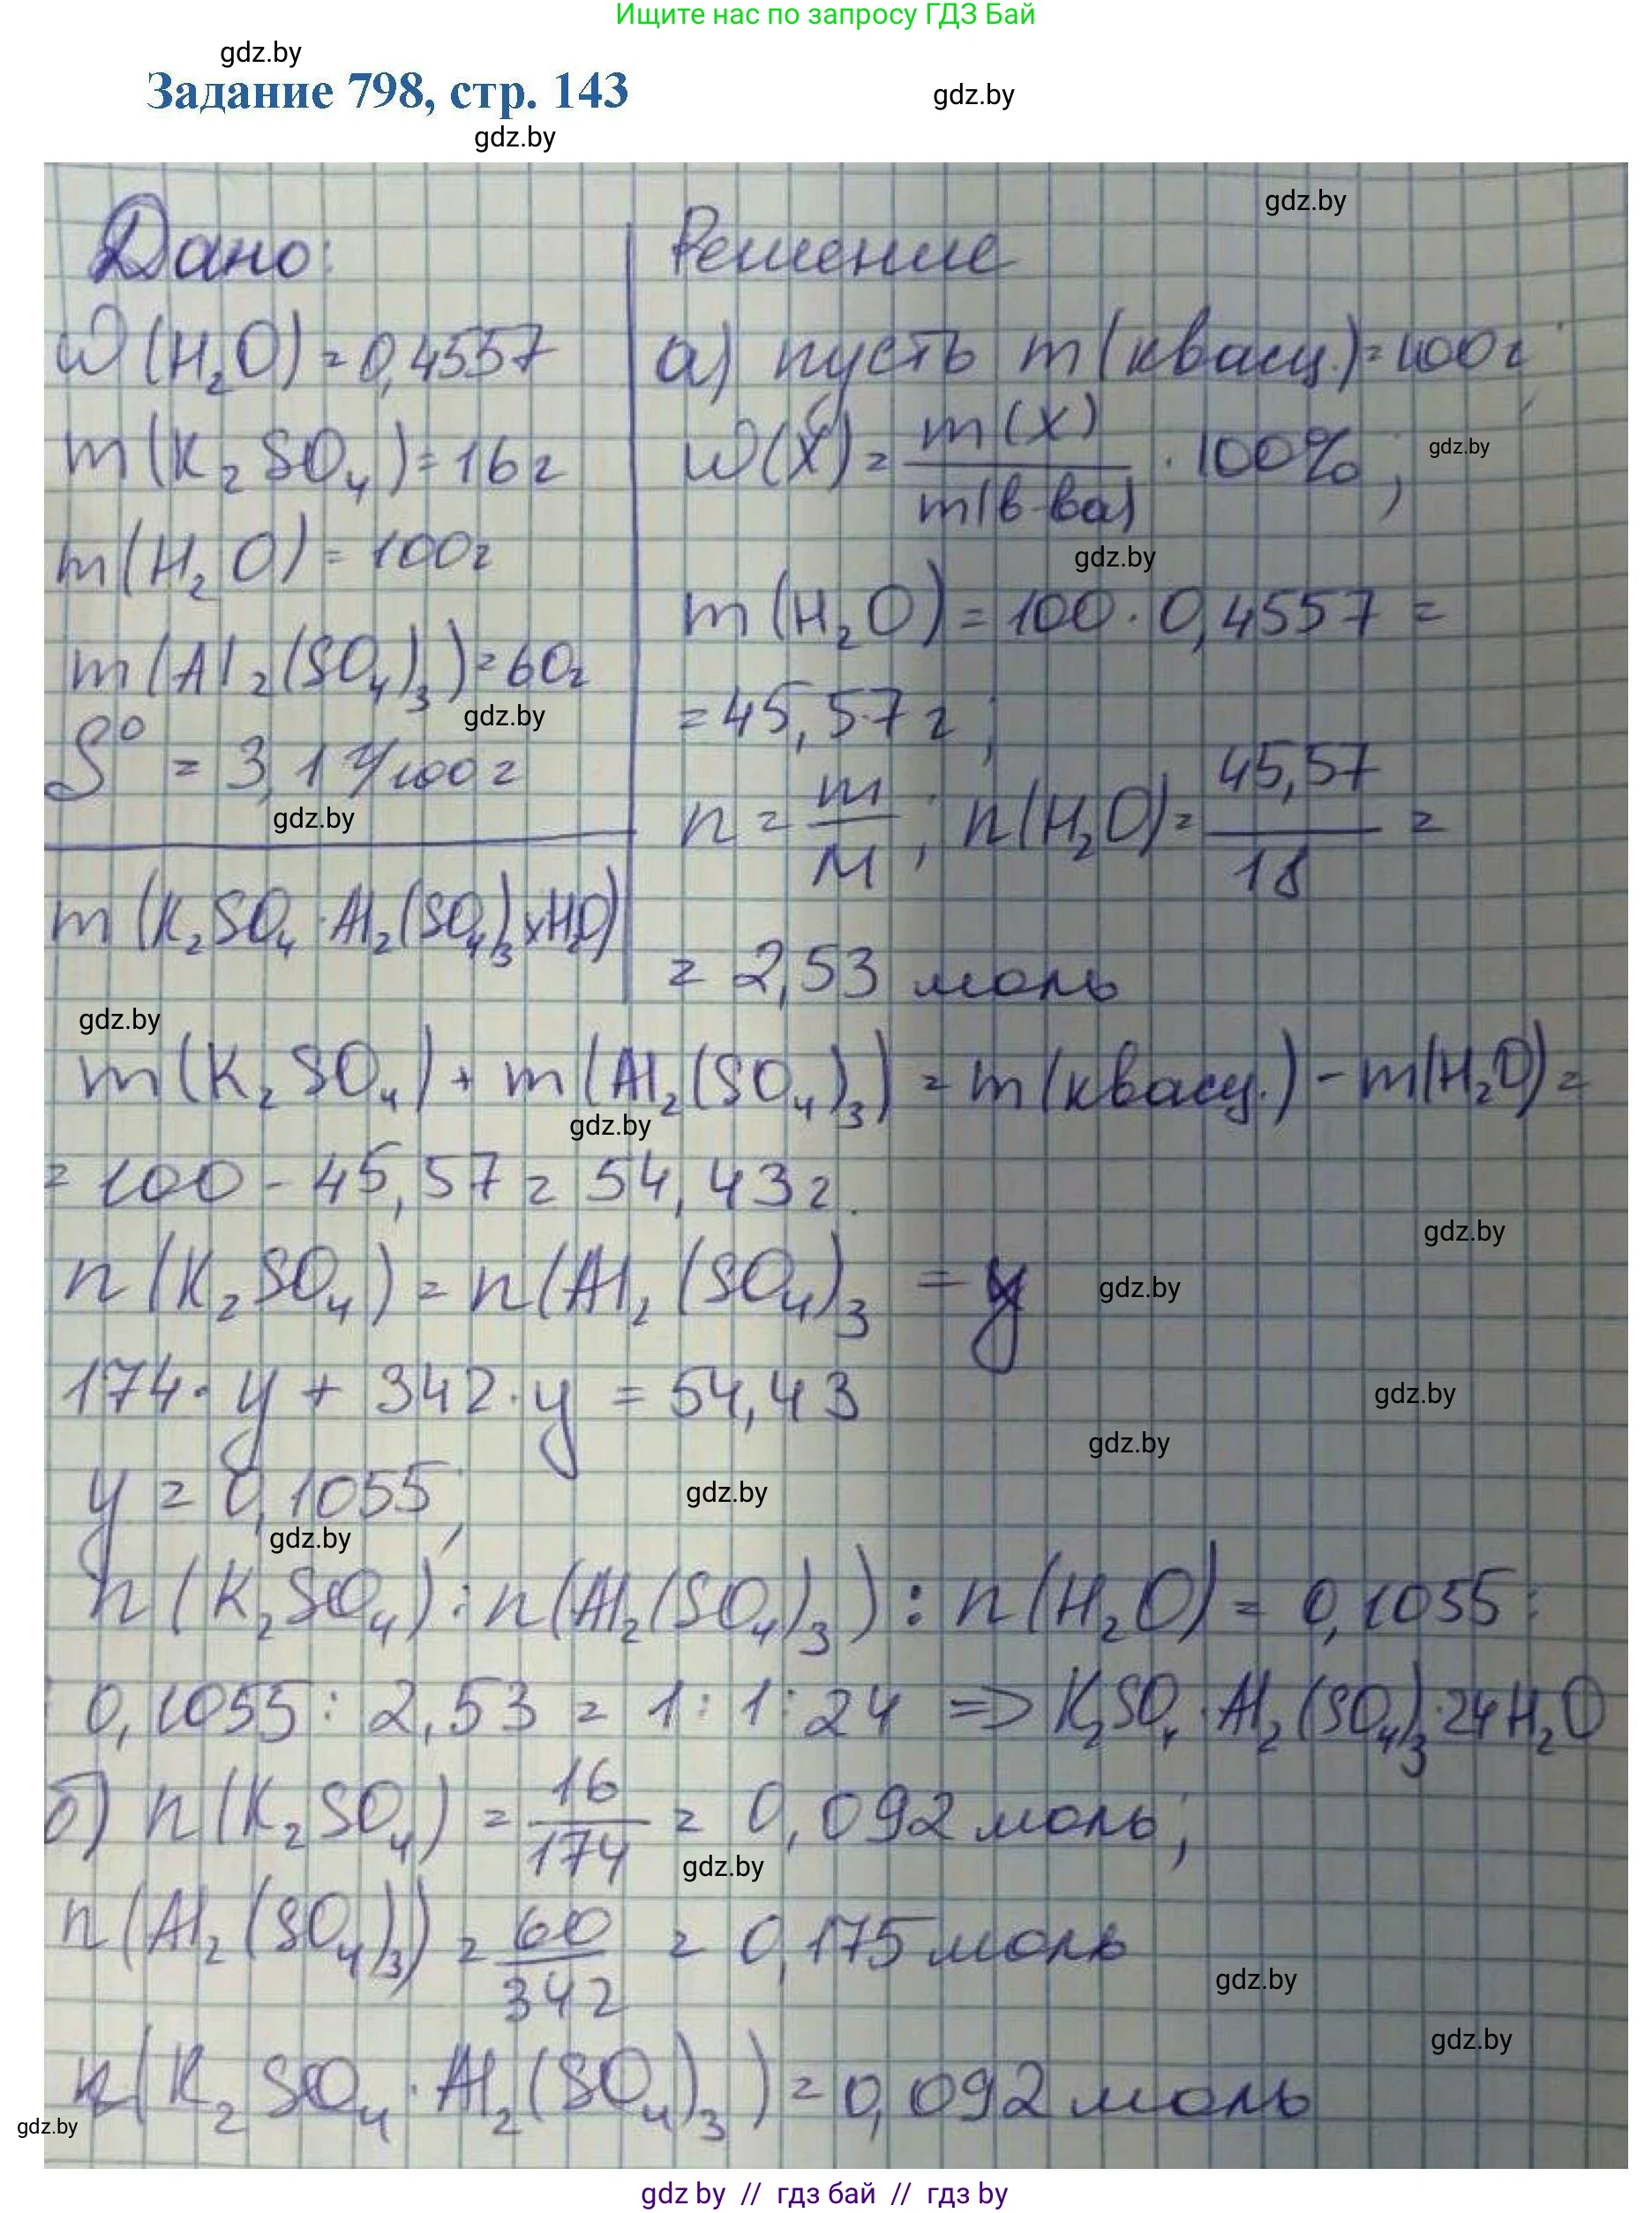 Ищите нас по запросу ГДЗ Бай
gdz.by
Задание 798, стр. 143
gdz.by
gdz.by
gdz.by
Дано:
W(H₂O) = 0,4557
m(K₂SO₄) = 16г
m(H₂O) = 100г
m(Al₂(SO₄)₃) = 60г
gdz.by
S⁰ = 3,1 г/100г
gdz.by
m(K₂SO₄·Al₂(SO₄)₃·xH₂O)
Решение
а) пусть m(квасц.) = 100г;
W(X) = m(X)/m(в-ва) · 100%;
gdz.by
gdz.by
m(H₂O) = 100·0,4557 =
= 45,57г;
n = m/M; n(H₂O) = 45,57/18 =
= 2,53 моль
gdz.by
m(K₂SO₄) + m(Al₂(SO₄)₃) = m(квасц.) - m(H₂O) =
gdz.by
= 100 - 45,57 = 54,43г.
gdz.by
n(K₂SO₄) = n(Al₂(SO₄)₃ = y
gdz.by
174·y + 342·y = 54,43
gdz.by
gdz.by
y = 0,1055;
gdz.by
gdz.by
n(K₂SO₄) : n(Al₂(SO₄)₃) : n(H₂O) = 0,1055 :
: 0,1055 : 2,53 = 1 : 1 : 24 => K₂SO₄·Al₂(SO₄)₃·24H₂O
б) n(K₂SO₄) = 16/174 = 0,092 моль;
gdz.by
n(Al₂(SO₄)₃) = 60/342 = 0,175 моль
gdz.by
gdz.by
n(K₂SO₄·Al₂(SO₄)₃) = 0,092 моль
gdz.by
gdz by // гдз бай // гдз by